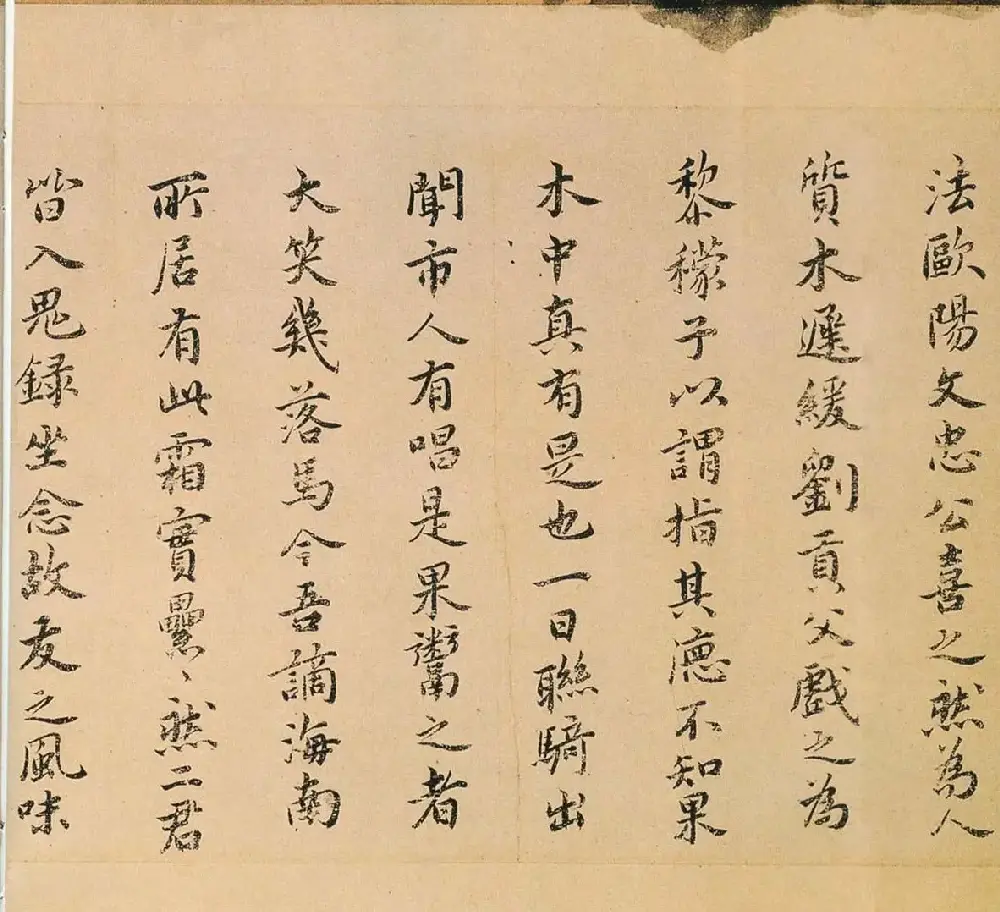 法歐陽文忠公喜之然為人
質木遲緩劉貢父戲之為
黎檬子以謂指其德不知果
木中真有是也一日聯騎出
聞市人有唱是果鬻之者
大笑幾落馬今吾謫海南
所居有此霜實纍〻然二君
皆入鬼録坐念故友之風味